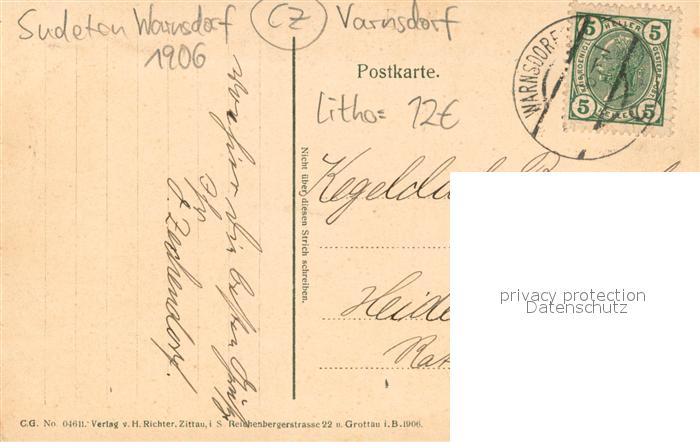 Sudeten Warnsdorf
1906
CZ
Varnsdorf
Postkarte.
Litho= 12€
WARNSDORF
5 HELLER 5
KAIS. KOENIGL. OESTERR. POST
5 HELLER 5
Nicht über diesen Strich schreiben.
die besten Grüße
F. Zechendorf.
Kegelclub
Heide
privacy protection
Datenschutz
C.G. No. 04611. Verlag v. H. Richter, Zittau, i S. Reichenbergerstrasse 22 u. Grottau i. B. 1906.